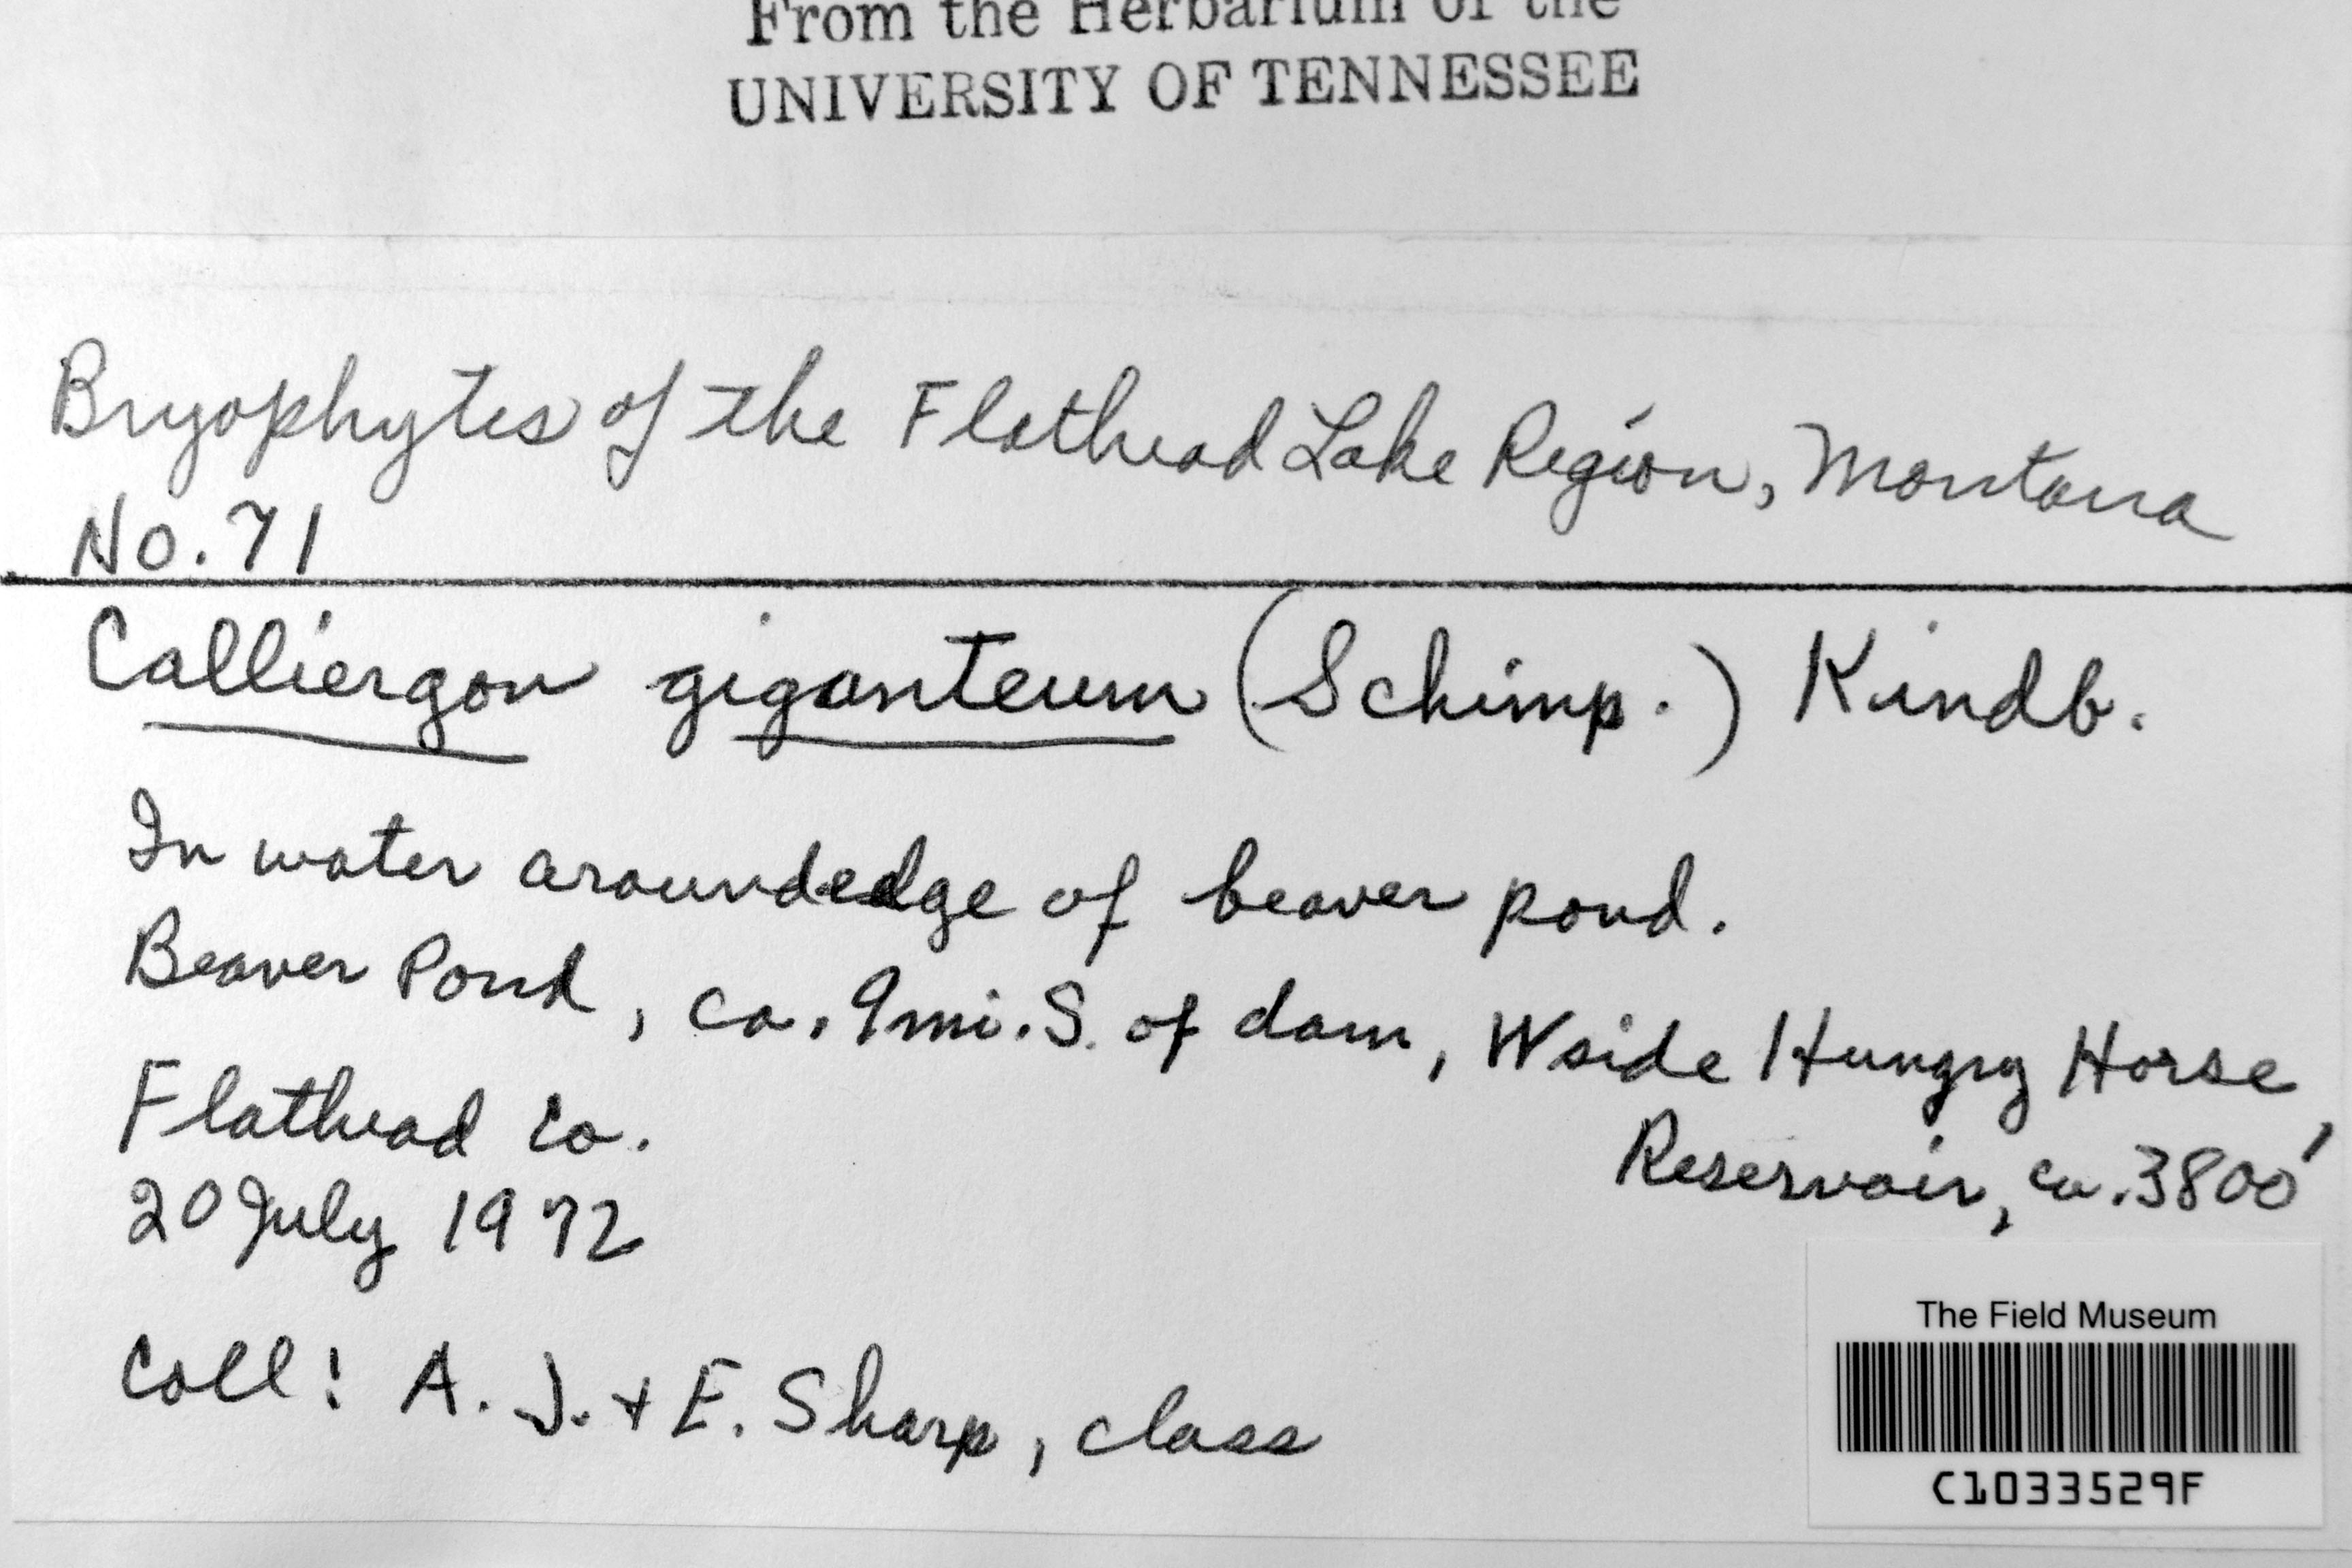 From the Herbarium of the
UNIVERSITY OF TENNESSEE
Bryophytes of the Flathead Lake Region, Montana
No. 71
Calliergon giganteum (Schimp.) Kindb.
In water around edge of beaver pond.
Beaver Pond, ca. 9 mi. S. of dam, W side Hungry Horse,
Reservoir, ca. 3800'
Flathead Co.
20 July 1972
Coll: A. J. + E. Sharp, class
The Field Museum
C1033529F